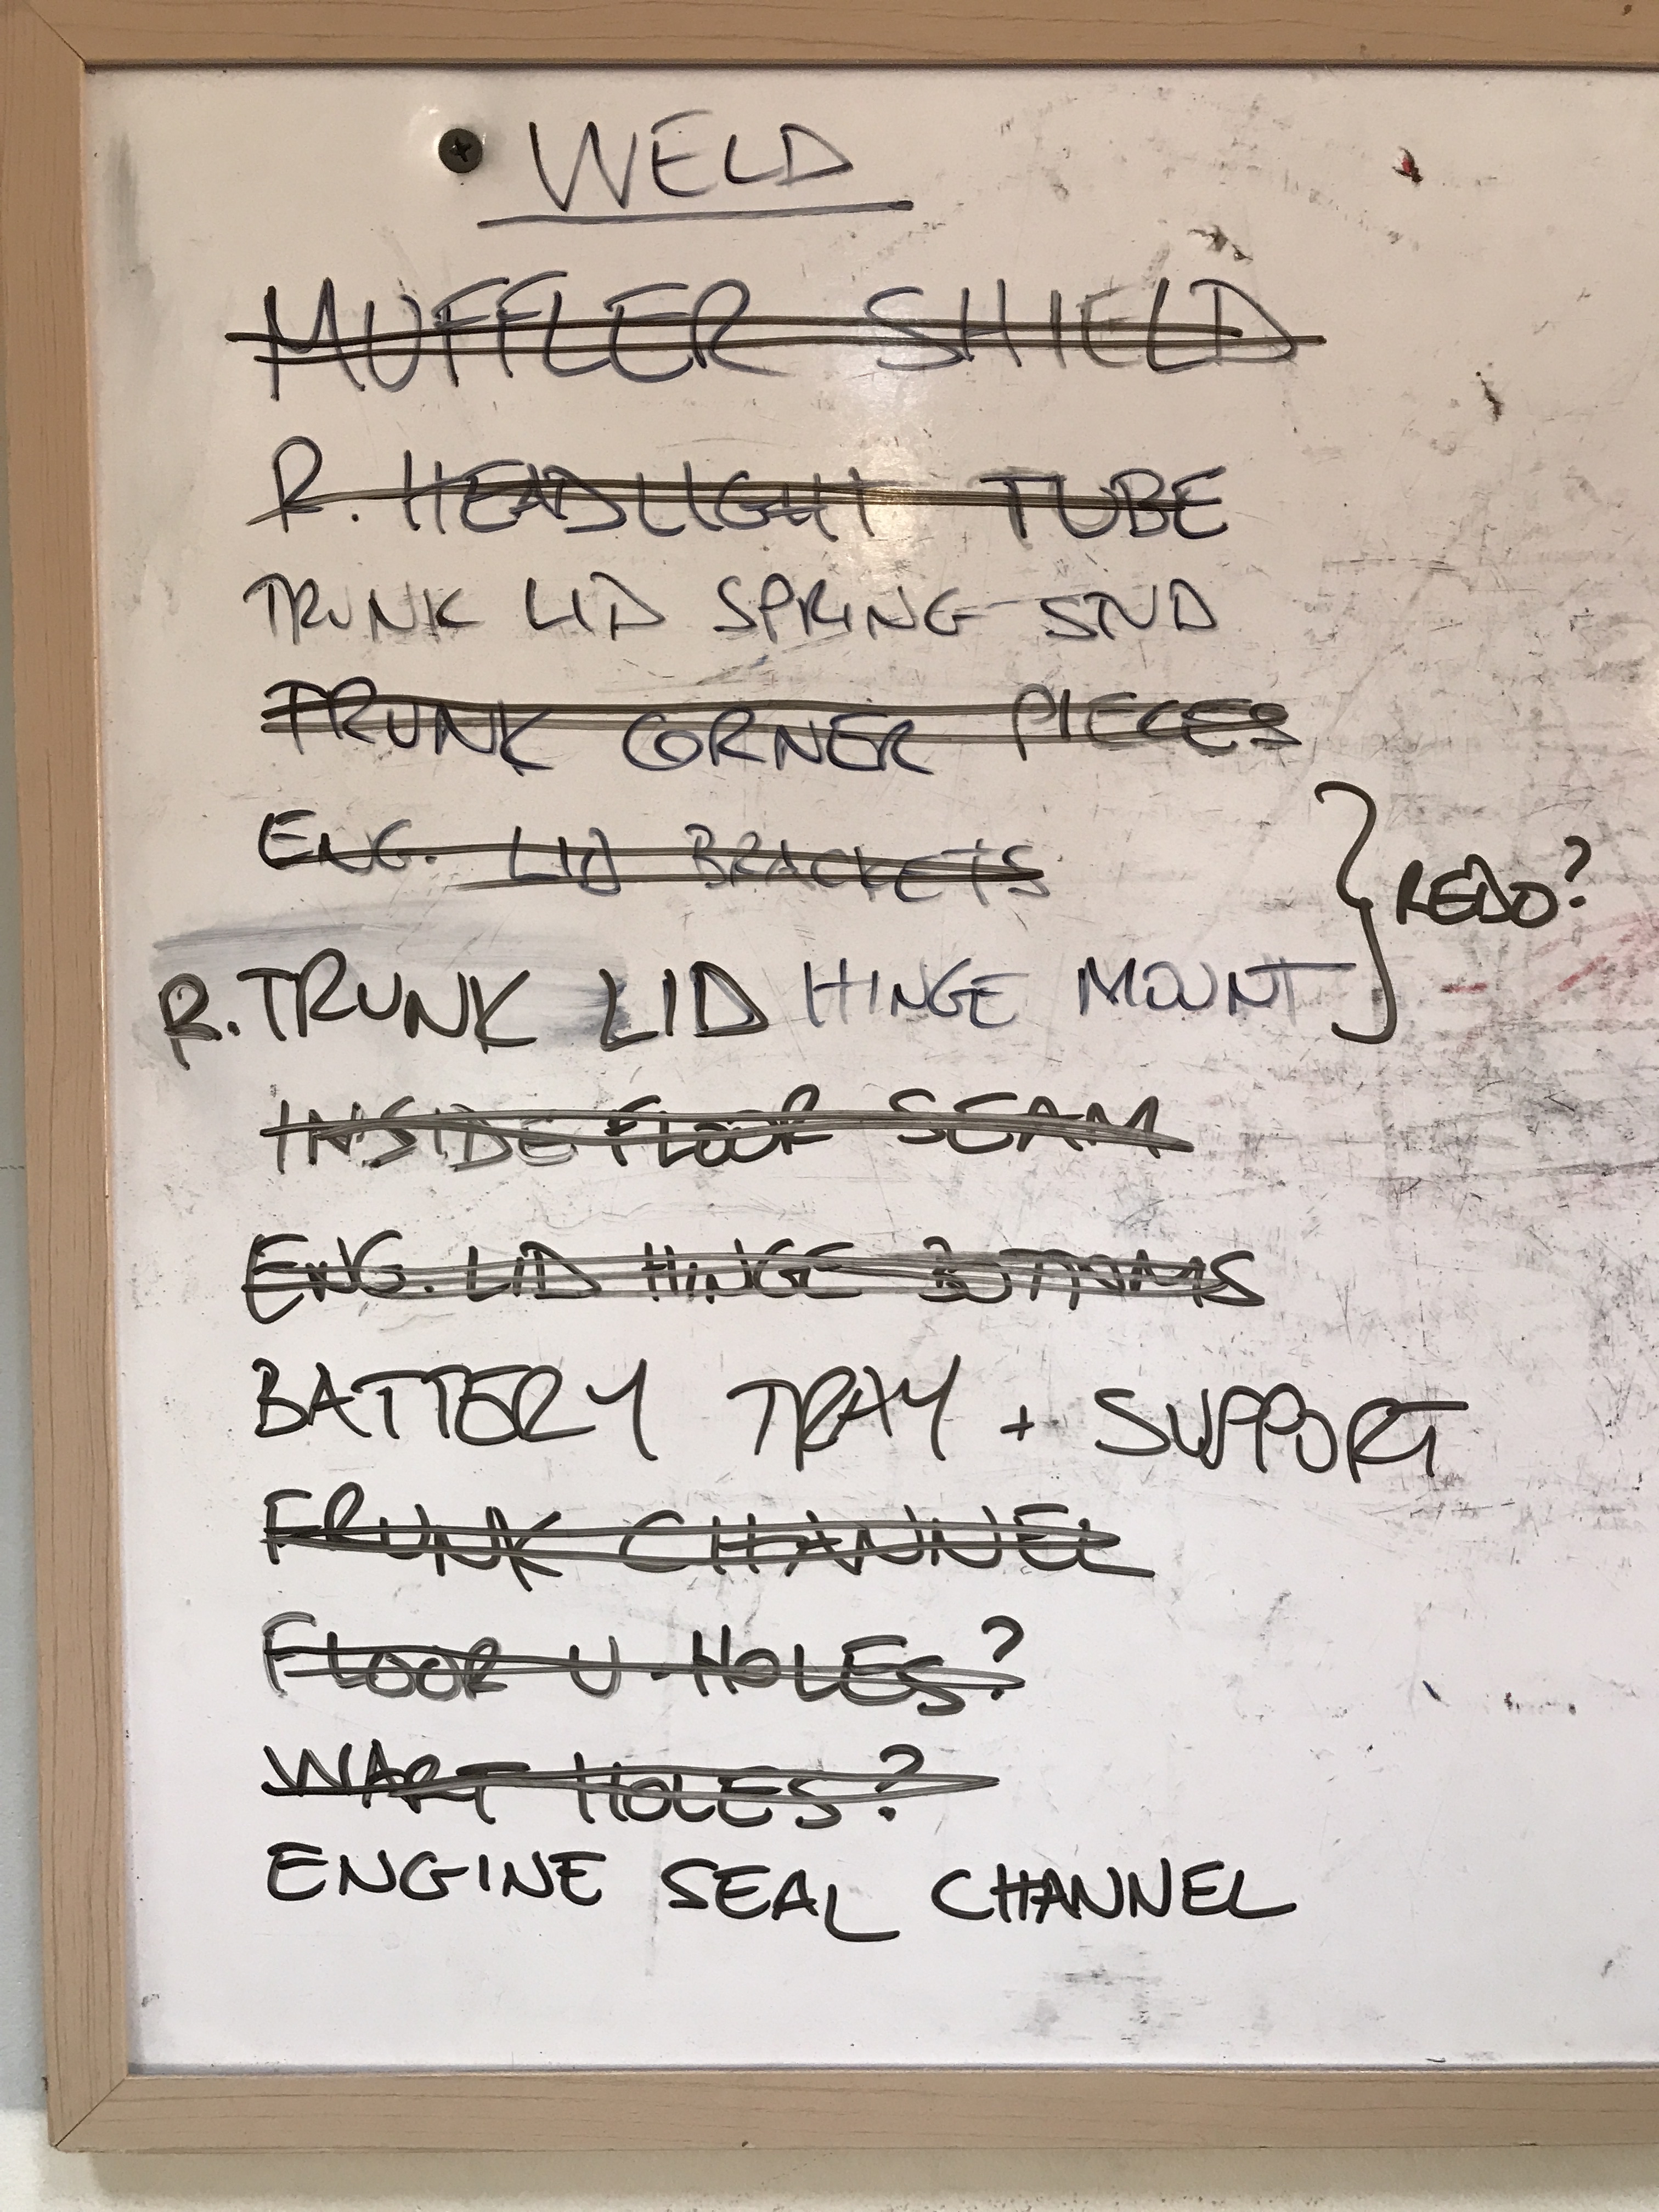 WELD
MUFFLER SHIELD
R. HEADLIGHT TUBE
TRUNK LID SPRING STUD
TRUNK CORNER PIECES
ENG. LID BRACKETS
REDO?
R. TRUNK LID HINGE MOUNT
INSIDE FLOOR SEAM
ENG. LID HINGE BOTTOMS
BATTERY TRAY + SUPPORT
TRUNK CHANNEL
FLOOR U-HOLES?
WART HOLES?
ENGINE SEAL CHANNEL